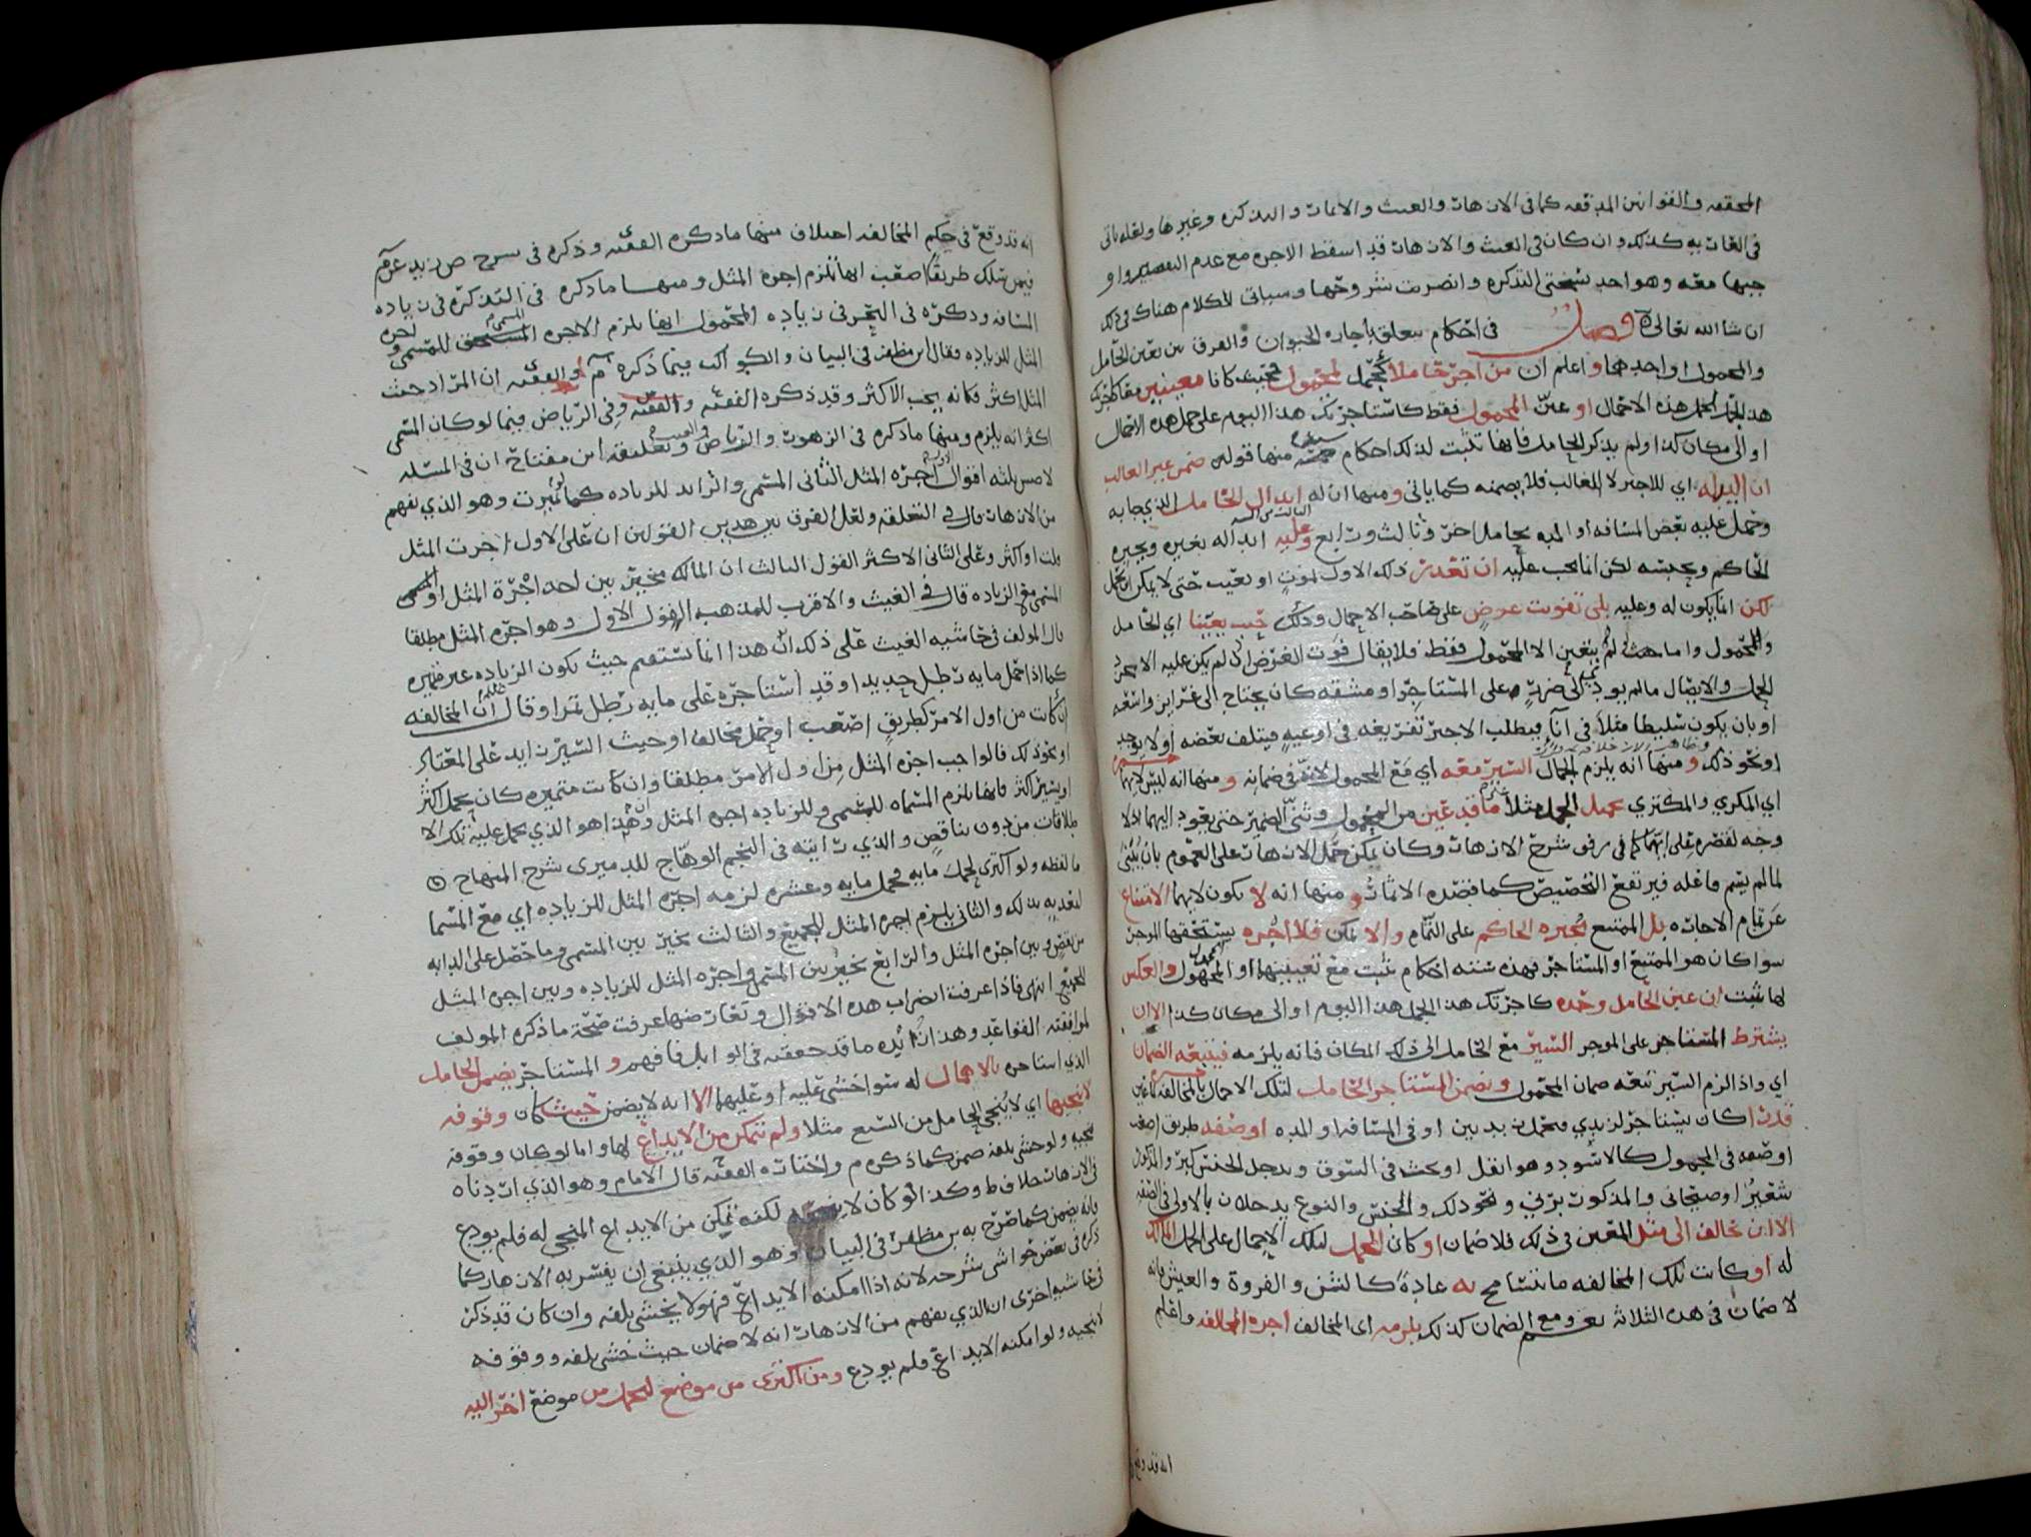 المحققه والقوانين المدققه كما في الازهار والغيث والاثمار والتذكره وغيرها ولعله ياتي
في الغاربه كذلك وان كان في الغيث والازهار قد اسقط الاجره مع عدم السير او
فيها معه وهو احد نسختي التذكره وانصرت شروحها وسياتي الكلام هناك في ذلك
ان شا الله تعالى فصل في احكام تتعلق باجاره الحيوان والفرق بين تعين الحامل
والمحمول او احدهما و اعلم ان من اجر حاملا كجمل لمحمول بحيث كانا معينين معا كاجرتك
هذا الجمل لحمل هذه الاحمال او عين المحمول فقط كاستاجرتك هذا اليوم على حمل هذه الاحمال
او الى مكان كذا ولم يذكر الحامل فانها تثبت لذلك احكام سته منها قوله ضمن غير الغالب
اي للاجير لا الغالب فلا يضمنه كما ياتي ومنها ان له ابدال الحامل الذي جا به
وحمل عليه بعض المسافه او المده بحامل اخر وثالث ورابع وعليه ابداله بغيره ويجبره
الحاكم ويحبسه لكن انما يجب عليه ان تعذر ذلك الاول لموت او تعيب حتى لا يمكن ان يحمل
لكن انما يكون له وعليه بلى تفويت عرض على صاحب الاحمال وذلك حيث تعينا اي الحامل
والمحمول واما حيث لم يتعين الا المحمول فقط فلا يقال فوت الغرض اذ لم يكن عليه الا مجرد
الحمل والايصال مالم يودي الى ضرر على المستاجر او مشقه كان يحتاج الى غراير واسعه
او بان يكون سليطا مثلا في انا فيطلب الاجير تفريغه في اوعيه فيتلف بعضه او لا يوجد
او نحو ذلك ومنها انه يلزم الجمال السير معه اي مع المحمول لانه في ضمانه ومنها انه ليس لايهما
اي المكري والمكتري حمل الجمل مثلا غير ما قد عين من المحمول وثنى الضمير حتى يعود اليهما اذ لا
وجه لقصره على ايهما كما في شرح الازهار وكان يمكن حمل الازهار على العموم بان يبنى
لما لم يسم فاعله فيرتفع التخصيص كما قصده الاثمار ومنها انه لا يكون لايهما الامتناع
عن تمام الاجاره بل الممتنع يجبره الحاكم على التمام والا يمكن فلا اجره يستحقها الموجر
سوا كان هو الممتنع او المستاجر فهذه سته احكام تثبت مع تعيينهما او المحمول والعكس
لها يثبت ان عين الحامل وحده كاجرتك هذا الجمل هذا اليوم او الى مكان كذا الا ان
يشترط المستاجر على الموجر السير مع الحامل الى ذلك المكان فانه يلزمه فيتبعه الضمان
اي واذا لزم السير تبعه ضمان المحمول ويضمن المستاجر الحامل لتلك الاحمال بالمخالفه كما عين
قدرا كان يستاجر لزبدي فحمل زبديين او في المسافه او المده او صفه طريق اصعب
او صفه في المحمول كالاسود وهو اثقل او بحث في السوق ويدخل الجنس كبر والمذكور
شعير او صيحاني والمذكور برني ونحو ذلك والجنس والنوع يدخلان بالاولى في الصفه
الا ان خالف الى مثل المعين في ذلك فلا ضمان او كان المحمل لتلك الاحمال على الجمل المالك
له او كانت تلك المخالفه ما يتسامح به عاده كالشن والفروة والعيش فانه
لا ضمان في هذه الثلاثه نعم ومع الضمان كذلك يلزمه اي المخالف اجره المخالفه واعلم
انه قد وقع
انه قد وقع في حكم المخالفه اختلاف منها ما ذكره الفقيه وذكره في شرح ص زيد عن م
فيمن سلك طريقا اصعب انها تلزم اجره المثل ومنها ما ذكره في التذكره في زياده
المسافه وذكره في البحر في زياده المحمول انها تلزم الاجره للمسمى واجره
المثل للزياده وقال ابن مظفر في البيان والكواكب فيما ذكره م والفقيه ان المراد حيث
المثل اكثر فكانه يجب الاكثر وقد ذكره الفقيه وفي الرياض فيما لو كان المسمى
اكثر انه يلزم ومنها ما ذكره في الزهور والرياض وتعليقه ابن مفتاح ان في المسئله
لاصحابنا ثلثه اقوال الاول اجره المثل الثاني المسمى والزايد للزياده كما تميزت وهو الذي يفهم
من الازهار قال في التعليقه ولعل الفرق بين هذين القولين ان على الاول اجرت المثل
قلت او اكثر وعلى الثاني الاكثر القول الثالث ان المالك مخير بين اخذ اجرة المثل او المسمى
المسمى مع الزياده قال في الغيث والاقرب للمذهب القول الاول وهو اجره المثل مطلقا
قال المولف في حاشيه الغيث على ذلك ان هذا انما يستقيم حيث تكون الزياده غير متميزه
كما اذا حمل مايه رطل حديد وقد استاجره على مايه رطل تمرا وقال ان المخالفه
ان كانت من اول الامر كطريق اصعب او حمل مخالف او حيث السير زايد على المعتاد
او نحو ذلك قالوا جب اجره المثل من اول الامر مطلقا وان كانت متميزه كان يحمل اكثر
او يسير اكثر فانها تلزم المسماه للمسمى وللزياده اجره المثل وهذا هو الذي يحمل عليه تلك الا
طلاقات من دون تناقص والذي رايته في النجم الوهاج للدميري شرح المنهاج
ما لفظه ولو اكترى لحمل مايه فحمل مايه وعشره لزمه اجره المثل للزياده اي مع المسما
لتعديه بذلك والثاني يلزم اجره المثل للجميع والثالث تخير بين المسمى وما حصل على الدابه
من نقص وبين اجره المثل والرابع تخير بين المسمى واجره المثل للزياده وبين اجره المثل
للجميع انتهى فاذا عرفت اضراب هذه الاقوال وتعارضها عرفت صحة ما ذكره المولف
لموافقته القواعد وهذا زايده ما قد حققه في الوابل فافهم و المستاجر يضمن الحامل
الذي استاجره بالاهمال له سوا خشي عليه او عليهما الا انه لا يضمن حيث كان وقوفه
لا ينجيها اي لا ينجي الحامل من السبع مثلا ولم يتمكن من الايداع لها واما لو كان وقوفه
ينجيه ولو خشي تلفه ضمن كما ذكره م واختاره الفقيه قال الامام وهو الذي ارتضاه
في الازهار خلاف ط وكذا لو كان لا ينجيه لكنه تمكن من الايداع المنجي له فلم يودع
فانه يضمن كما صرح به بن مظفر في البيان وهو الذي ينبغي ان يفسر به الازهار كما
ذكره في بعض حواشي شرحه لانه اذا امكنه الايداع فهو لا يخشى تلفه وان كان قد ذكر
في حاشيه اخرى ان الذي يفهم من الازهار انه لا ضمان حيث خشي تلفه ووقوفه
لا ينجيه ولو امكنه الايداع فلم يودع ومن اكترى من موضع ليحمل من موضع اخر اليه